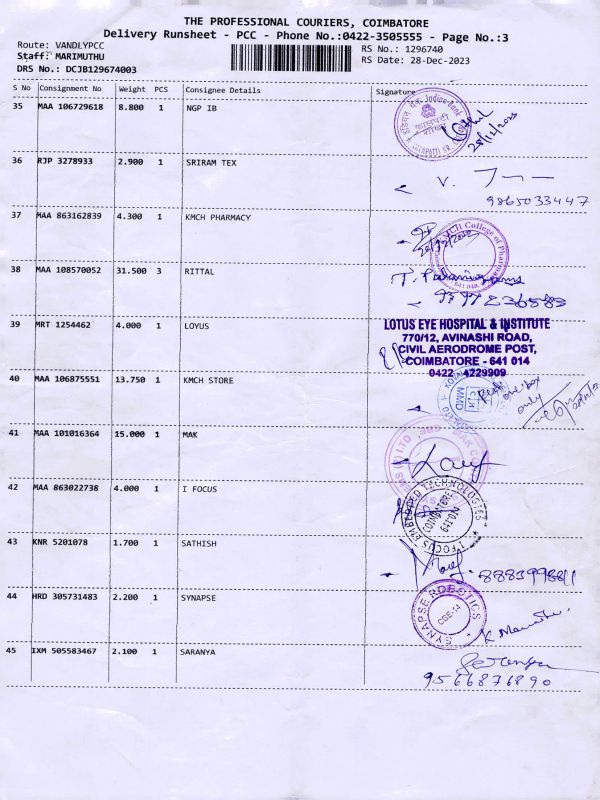 THE PROFESSIONAL COURIERS, COIMBATORE
Delivery Runsheet - PCC - Phone No.:0422-3505555 - Page No.:3
Route: VANDLYPCC
RS No.: 1296740
Staff: MARIMUTHU
RS Date: 28-Dec-2023
DRS No.: DCJB129674003
S No Consignment No Weight PCS Consignee Details Signature
35 MAA 106729618 8.800 1 NGP IB
Indian Bank
36 RJP 3278933 2.900 1 SRIRAM TEX
9865033447
37 MAA 863162839 4.300 1 KMCH PHARMACY
College of Pharmacy
38 MAA 108570052 31.500 3 RITTAL
39 MRT 1254462 4.000 1 LOYUS
LOTUS EYE HOSPITAL & INSTITUTE
770/12, AVINASHI ROAD,
CIVIL AERODROME POST,
COIMBATORE - 641 014
0422 4229909
40 MAA 106875551 13.750 1 KMCH STORE
MMD
one box
only
41 MAA 101016364 15.000 1 MAK
42 MAA 863022738 4.000 1 I FOCUS
I FOCUS EMBEDDED TECHNOLOGIES
COIMBATORE
43 KNR 5201078 1.700 1 SATHISH
44 HRD 305731483 2.200 1 SYNAPSE
SYNAPSE ROBOTICS
CBE-14
45 IXM 505583467 2.100 1 SARANYA
9566876890